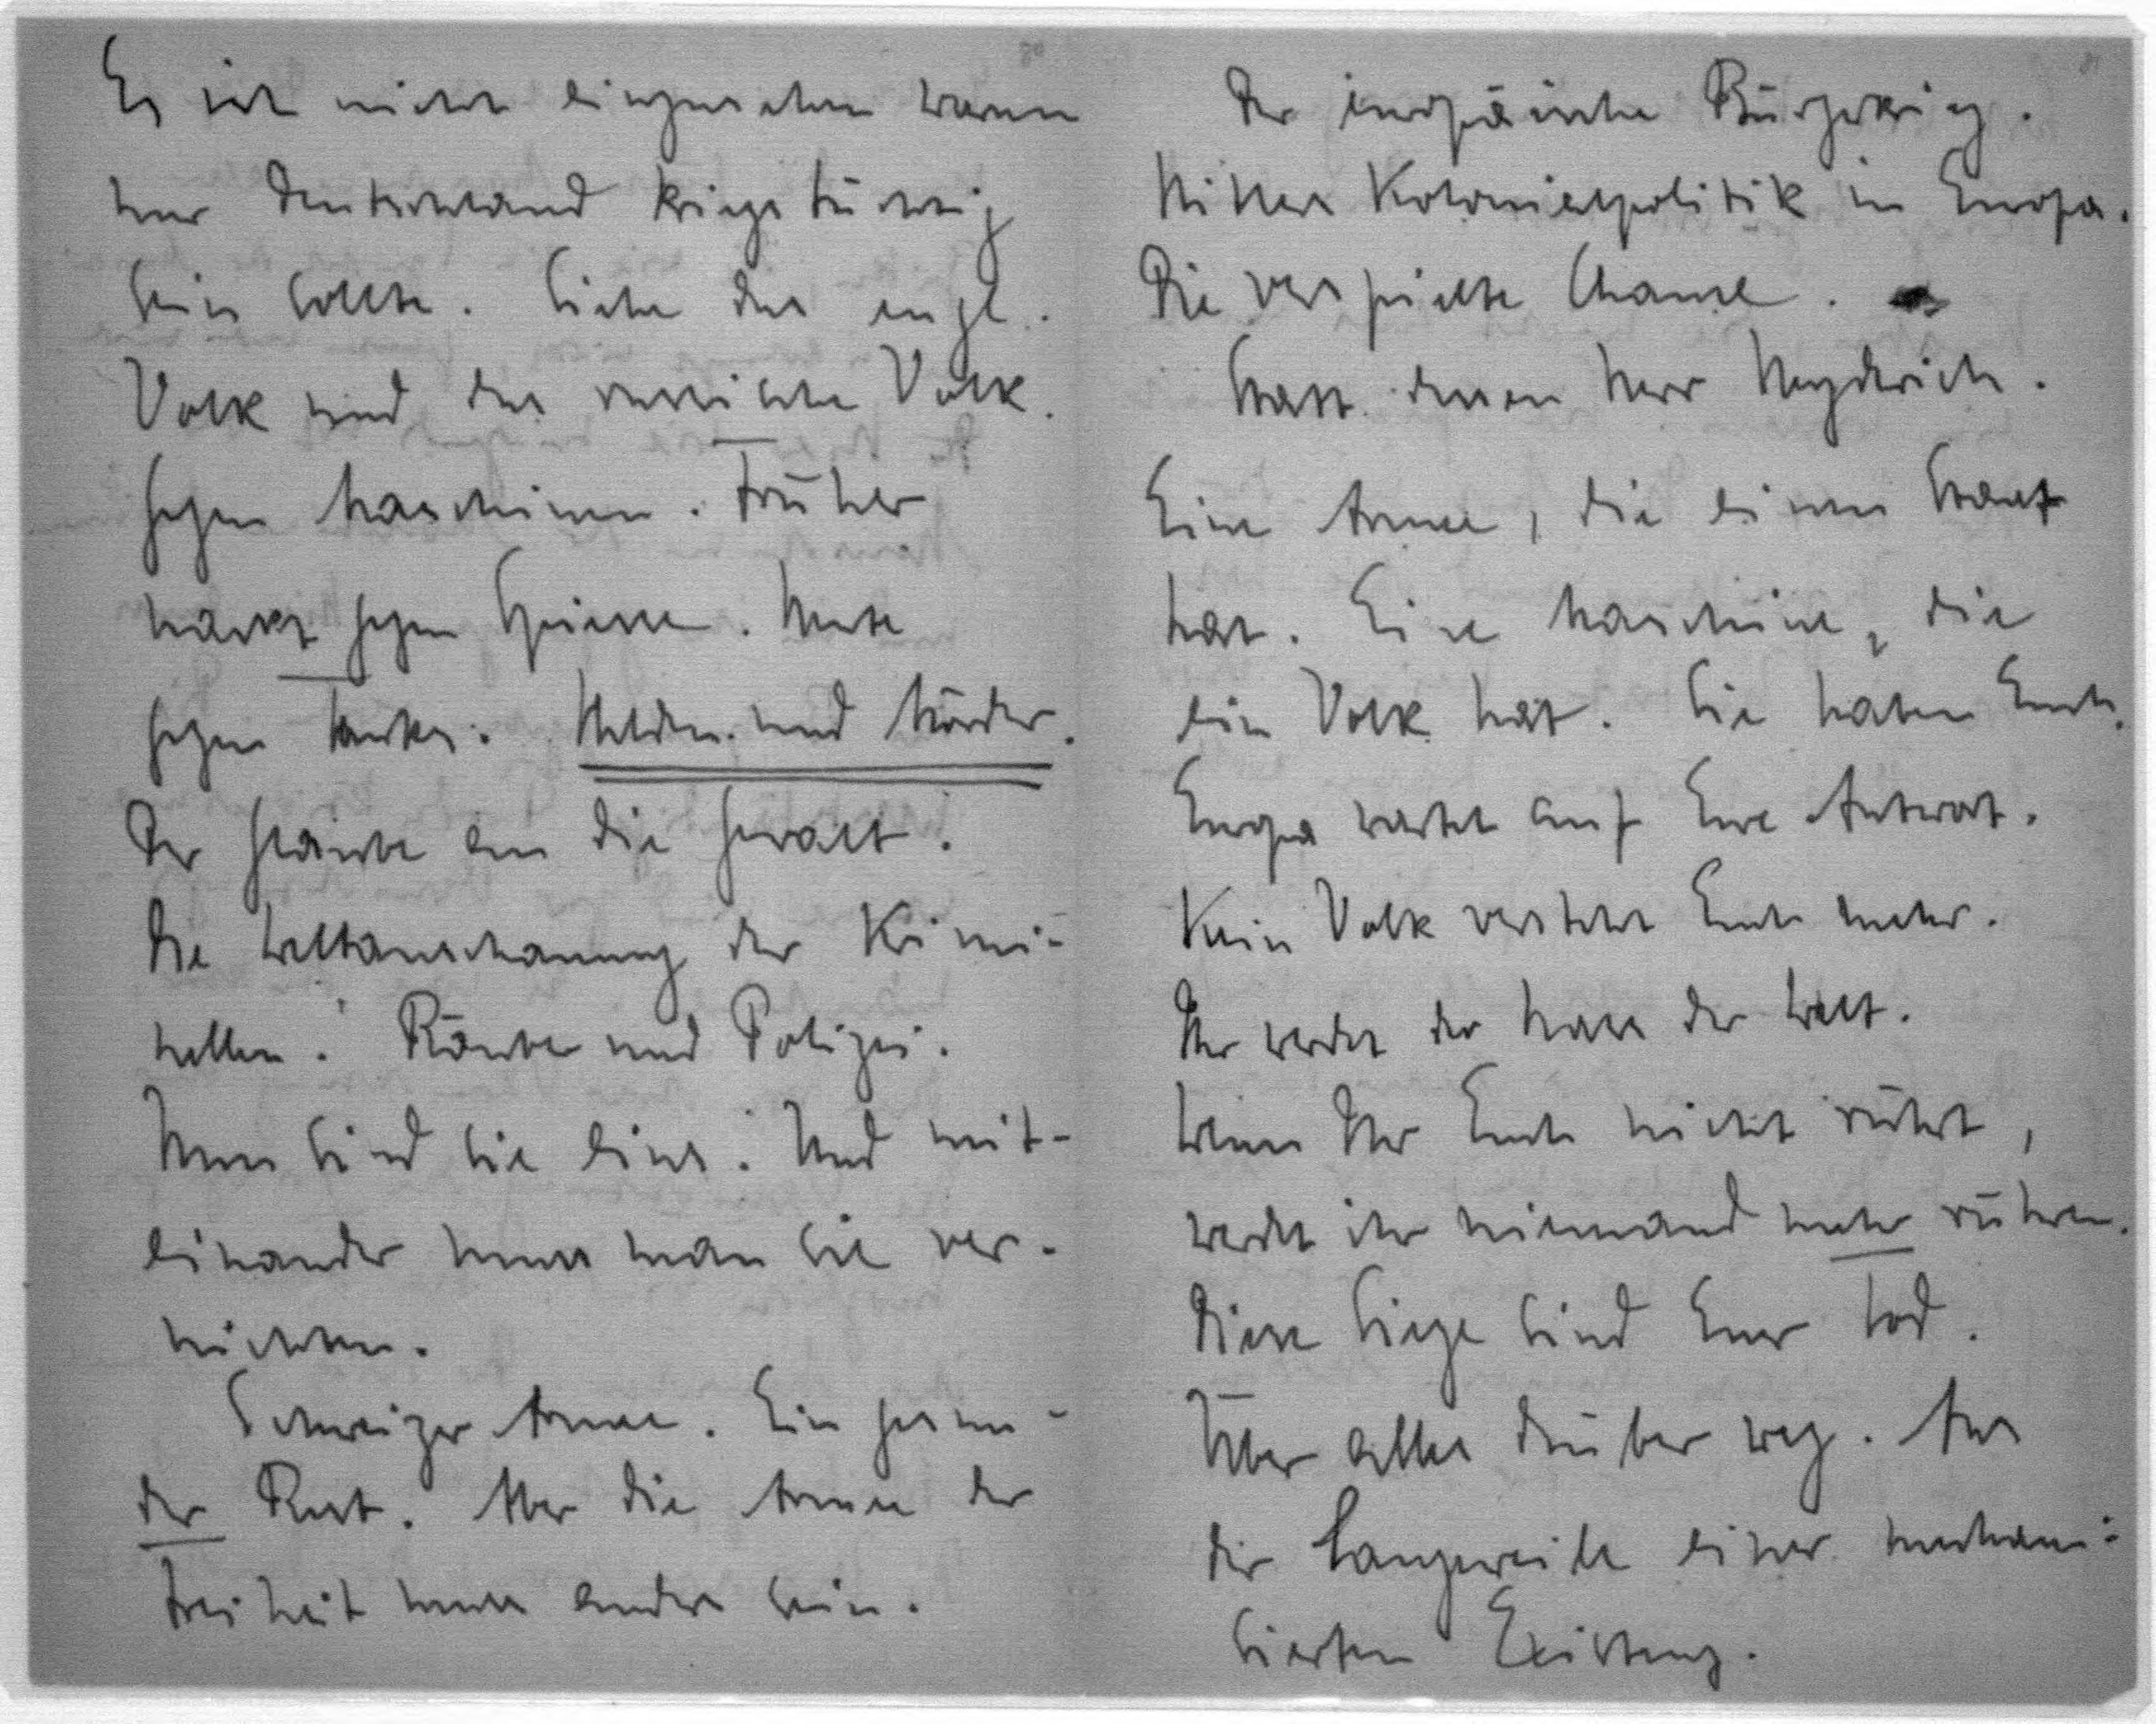 Es ist nicht einzusehen warum
nur Deutschland kriegstüchtig
sein sollte. Siehe das engl.
Volk und das russische Volk.
Gegen Maschinen. Früher
nackt gegen Spiesse. Heute
gegen Tanks. Helden und Mörder.
Der Glaube an die Gewalt.
Die Weltanschauung der Krimi-
nellen. Räuber und Polizei.
Nun sind sie eins. Und mit-
einander muss man sie ver-
nichten.
Schweizer Armee. Ein gesun-
der Rest. Aber die Armee der
Freiheit muss anders sein.
Der europäische Bürgerkrieg.
Hitlers Kolonialpolitik in Europa.
Die verspielte Chance.
Statt dessen Herr Heydrich.
Eine Armee, die einen Staat
hat. Eine Maschine, die
ein Volk hat. Sie haben Euch.
Europa wartet auf Eure Antwort.
Kein Volk versteht Euch mehr.
Ihr werdet der Hass der Welt.
Wenn Ihr Euch nicht rührt,
werdet ihr niemand mehr rühren.
Diese Siege sind Euer Tod.
Über alles drüber weg. Aus
der Langeweile einer mechani-
sierten Existenz.